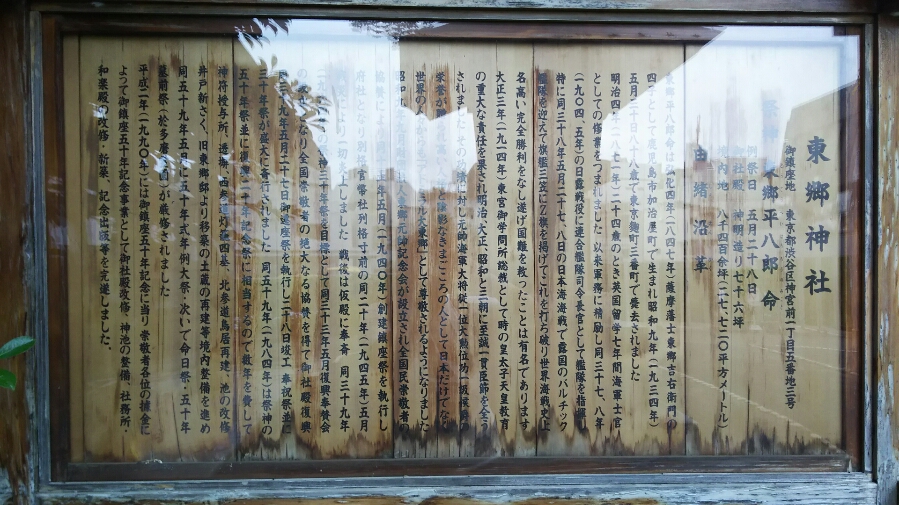 東郷神社
御鎮座地 東京都渋谷区神宮前一丁目五番地三号
祭神 東郷平八郎命
例祭日 五月二十八日
社殿 神明造り七十六坪
境内地 八千四百余坪(二七、七二〇平方メートル)
由緒沿革
東郷平八郎命は弘化四年(一八四七年)薩摩藩士東郷吉右衛門の
四男として鹿児島市加治屋町で生まれ昭和九年(一九三四年)
五月三十日八十八歳で東京麹町三番町で薨去されました
明治四年(一八七一年)二十四歳のとき英国留学七年間海軍士官
としての修業をつまれました 以来軍務に精励し同三十七、八年
(一九〇四、五年)の日露戦役に連合艦隊司令長官として艦隊を指揮
特に同三十八年五月二十七、八日の日本海海戦で露国のバルチック
艦隊を迎えて旗艦三笠にZ旗を掲げてこれを打ち破り世界海戦史上
名高い完全勝利をなし遂げ国難を救ったことは有名であります
大正三年(一九一四年)東宮御学問所総裁として時の皇太子天皇教育
の重大な責任を果され明治、大正、昭和と三朝に至誠一貫臣節を全う
されました その功績に対し元帥海軍大将従一位大勲位功一級侯爵の
栄誉が贈 なきまごころの人として日本だけでなく
世界の 東郷」として尊敬されるようになりました
昭和 東郷元帥記念会が設立され全国民崇敬者の
協賛により 年五月(一九四〇年)創建鎮座祭を執行し
府社 別格官幣社列格寸前の同二十年(一九四五年)五月
により一切 しました 戦後は仮殿に奉斎 同三十九年
神三十年祭を目標として同三十三年五月復興奉賛会
の なり全国崇敬者の絶大なる協賛を得て御社殿復興
同三九年五月二十七日御遷座祭を執行し二十八日竣工奉祝祭並に
三十年祭が盛大に斎行されました 同五十九年(一九八四年)は祭神の
五十年祭並に復興二十年記念祭に相当するので数年を費して
神符授与所、透塀、西参道灯籠四基、北参道鳥居再建、池の改修
井戸新さく、旧東郷邸より移築の土蔵の再建等境内整備を進め
同五十九年、五月に五十年式年例大祭・次いで命日祭・五十年
墓前祭(於多摩霊園)が厳修されました
平成二年(一九九〇年)には御鎮座五十年記念に当り 崇敬者各位の献金に
よって御鎮座五十年記念事業として御社殿改修・神池の整備、社務所・
和楽殿の改修・新築、記念出版等を完遂しました。